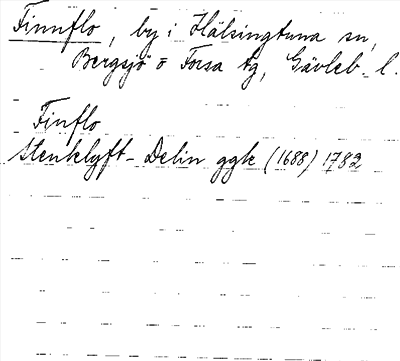 Finnflo, by i Hälsingtuna sn,
Bergsjö o Forsa tg, Gävleb. l.
Finflo
Stenklyft-Delin ggk (1688) 1782